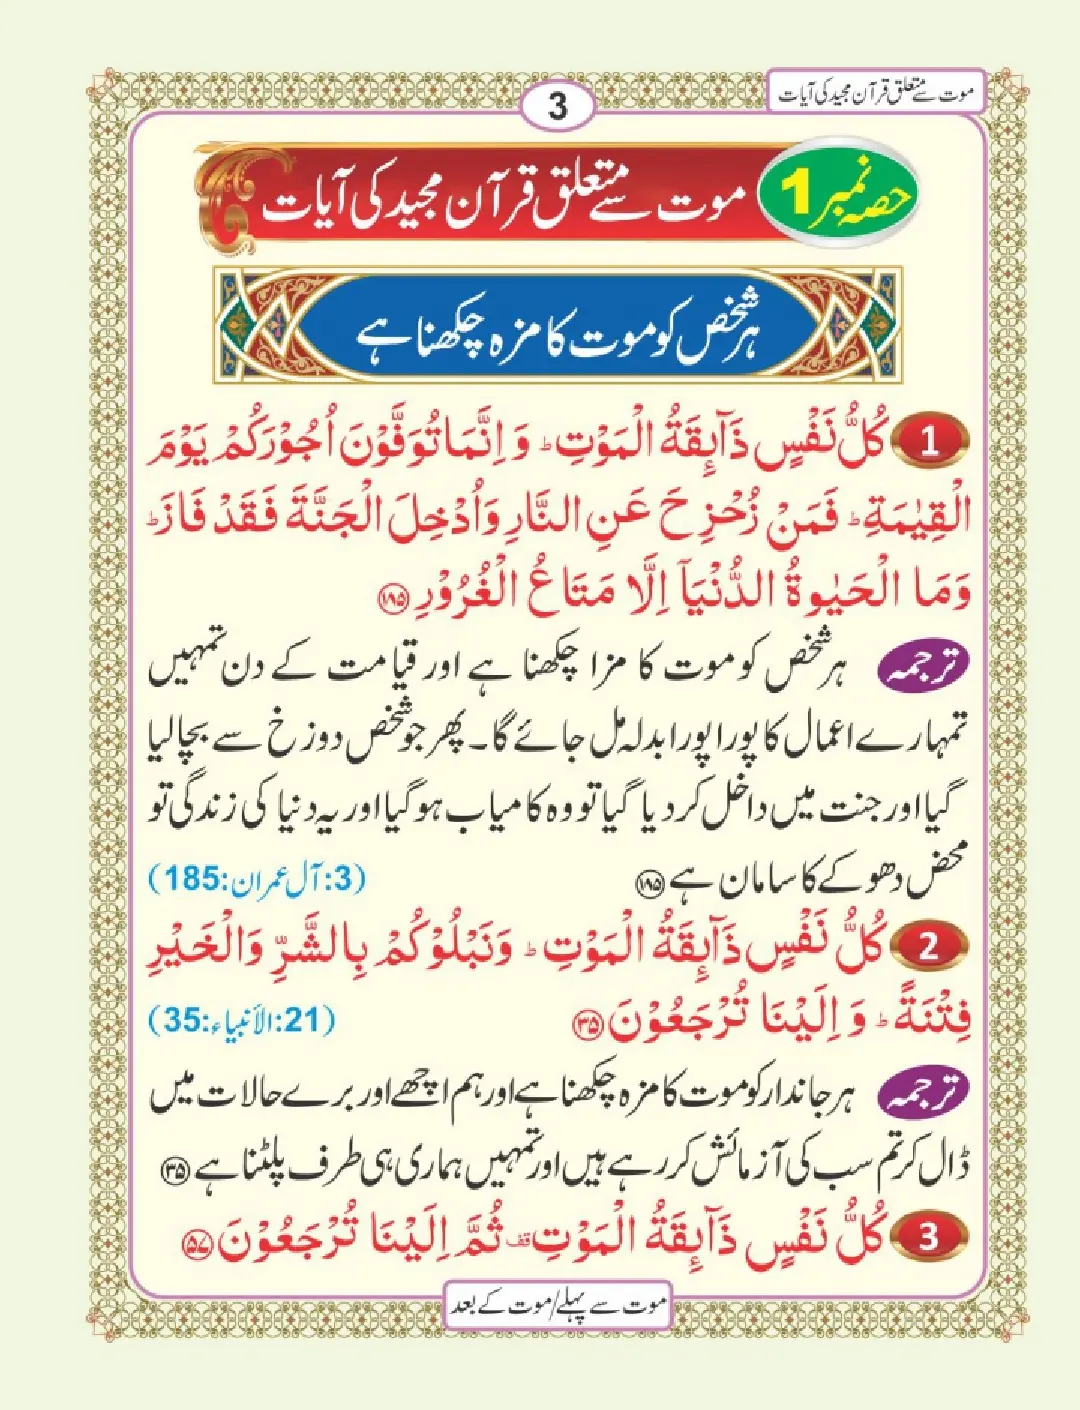 موت سے متعلق قرآن مجید کی آیات
3
حصہ نمبر 1
موت سے متعلق قرآن مجید کی آیات
ہر شخص کو موت کا مزہ چکھنا ہے
1 كُلُّ نَفْسٍ ذَآىِٕقَةُ الْمَوْتِ ؕ وَ اِنَّمَا تُوَفَّوْنَ اُجُوْرَكُمْ يَوْمَ
الْقِيٰمَةِ ؕ فَمَنْ زُحْزِحَ عَنِ النَّارِ وَاُدْخِلَ الْجَنَّةَ فَقَدْ فَازَ ؕ
وَمَا الْحَيٰوةُ الدُّنْيَاۤ اِلَّا مَتَاعُ الْغُرُوْرِ ۱۸۵
ترجمہ ہر شخص کو موت کا مزا چکھنا ہے اور قیامت کے دن تمہیں
تمہارے اعمال کا پورا پورا بدلہ مل جائے گا۔ پھر جو شخص دوزخ سے بچا لیا
گیا اور جنت میں داخل کر دیا گیا تو وہ کامیاب ہو گیا اور یہ دنیا کی زندگی تو
محض دھوکے کا سامان ہے ۱۸۵ (3:آل عمران:185)
2 كُلُّ نَفْسٍ ذَآىِٕقَةُ الْمَوْتِ ؕ وَنَبْلُوْكُمْ بِالشَّرِّ وَالْخَيْرِ
فِتْنَةً ؕ وَ اِلَيْنَا تُرْجَعُوْنَ ۳۵ (21:الأنبياء:35)
ترجمہ ہر جاندار کو موت کا مزہ چکھنا ہے اور ہم اچھے اور برے حالات میں
ڈال کر تم سب کی آزمائش کر رہے ہیں اور تمہیں ہماری ہی طرف پلٹنا ہے ۳۵
3 كُلُّ نَفْسٍ ذَآىِٕقَةُ الْمَوْتِ قف ثُمَّ اِلَيْنَا تُرْجَعُوْنَ ۵۷
موت سے پہلے/موت کے بعد